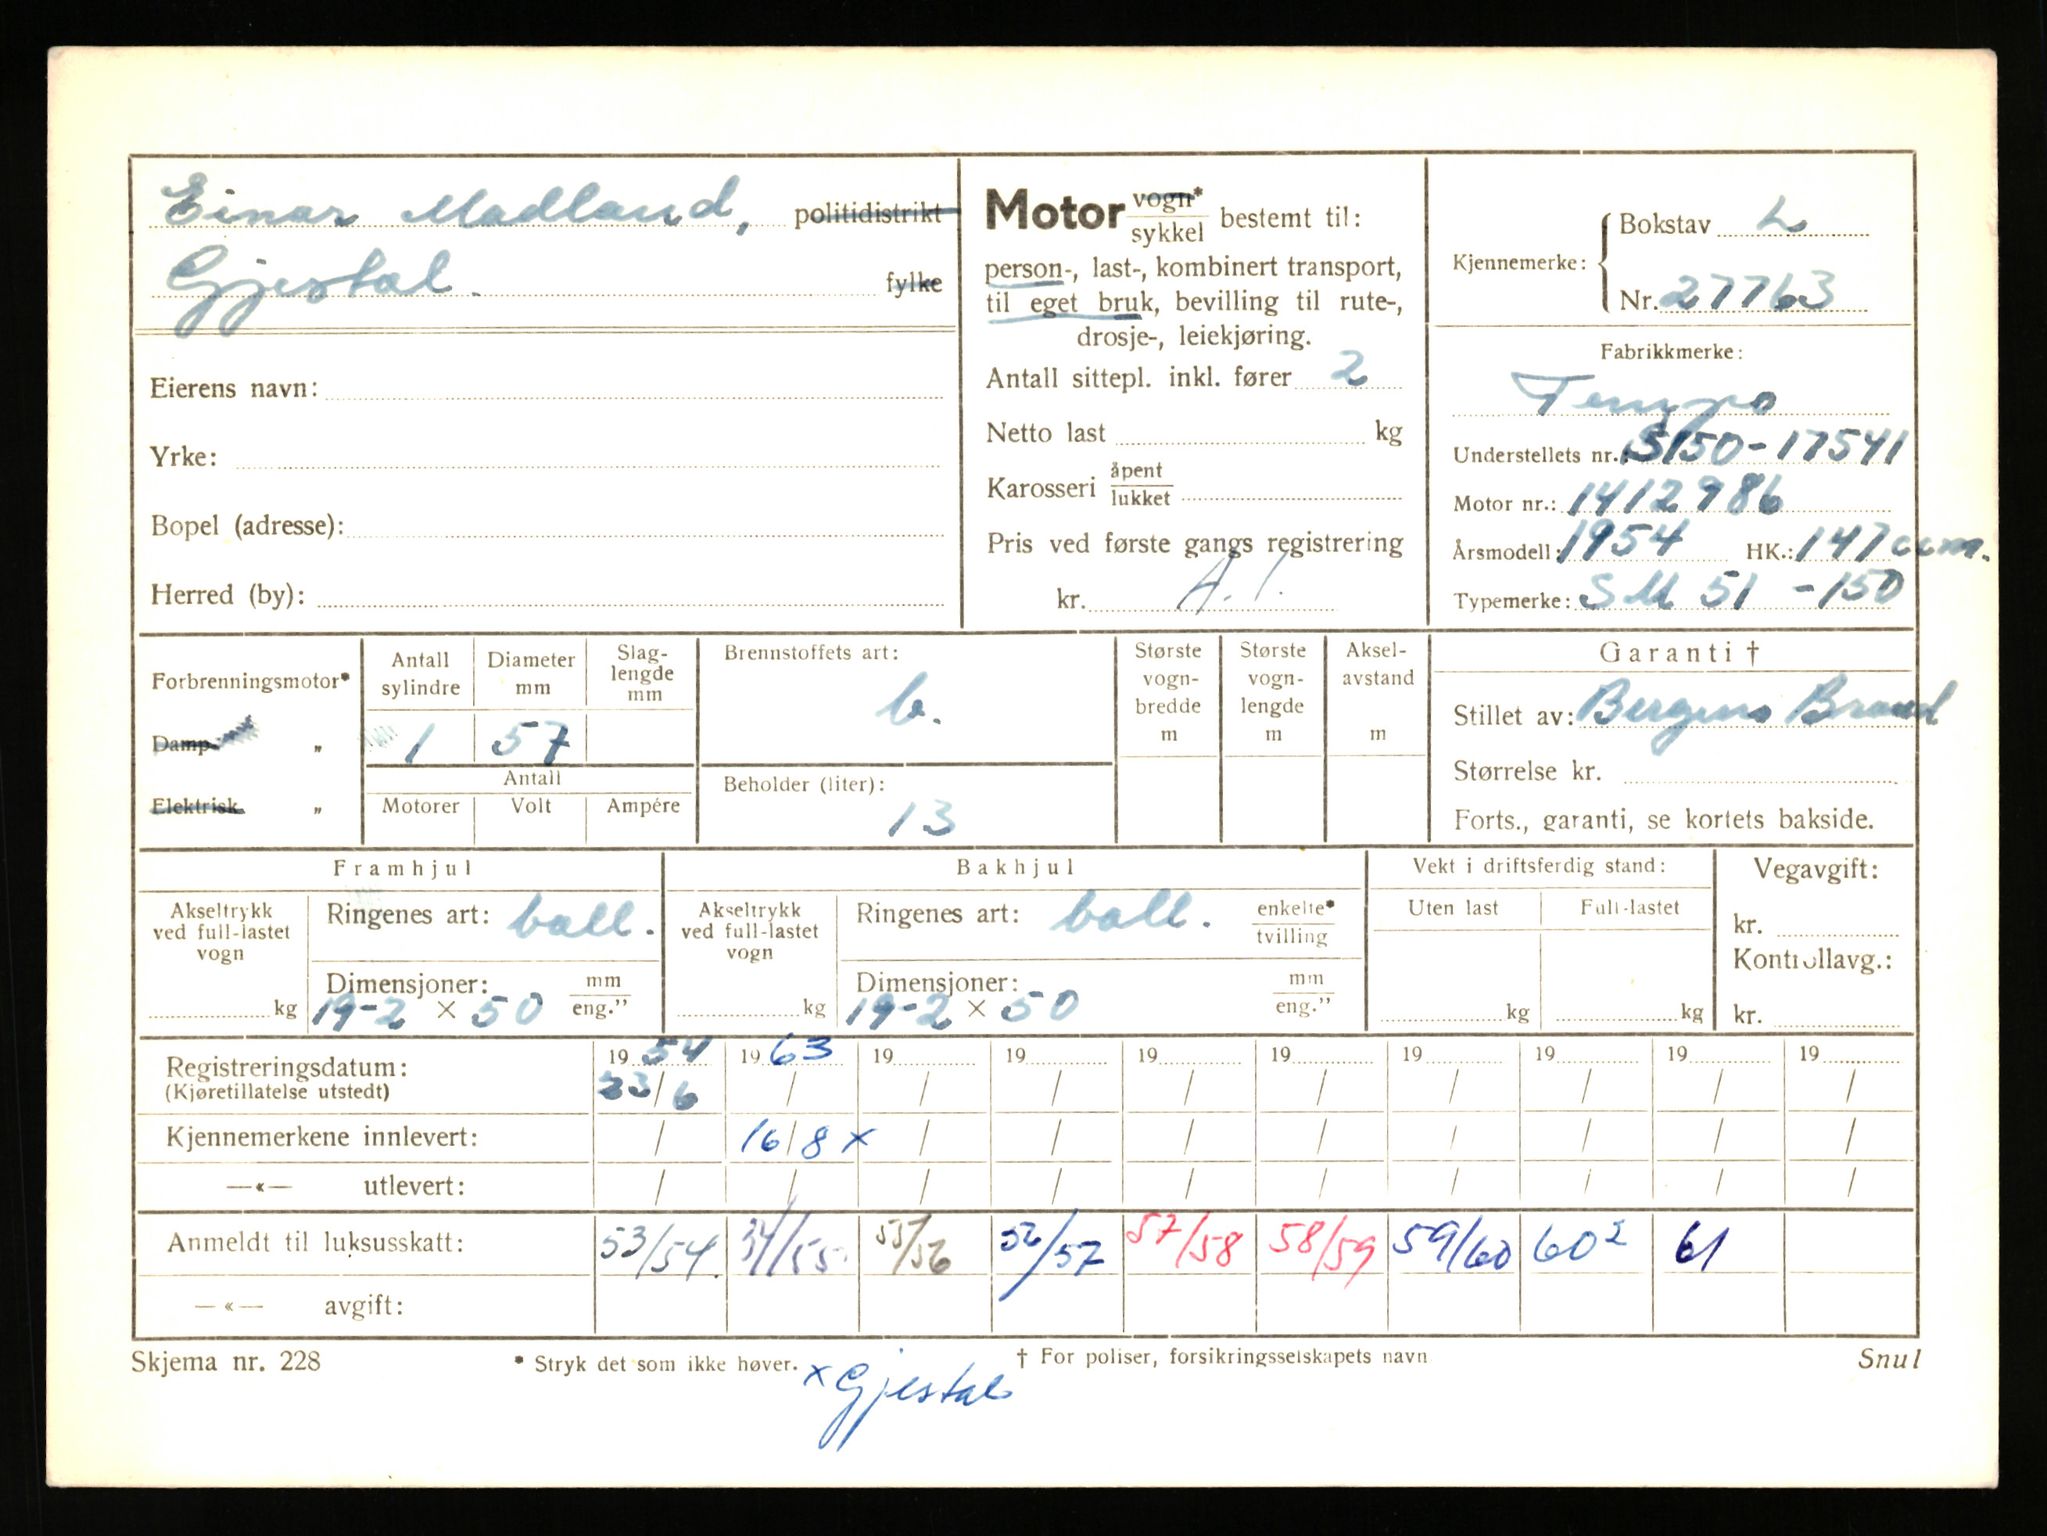 Einar Madland, politidistrikt
Gjestal. fylke
Eierens navn:
Yrke:
Bopel (adresse):
Herred (by):
Motor vogn* sykkel bestemt til:
person-, last-, kombinert transport,
til eget bruk, bevilling til rute-,
drosje-, leiekjøring.
Antall sittepl. inkl. fører 2
Netto last kg
Karosseri åpent lukket
Pris ved første gangs registrering
kr. A. I.
Kjennemerke: Bokstav L
Nr. 27763
Fabrikkmerke:
Tempo
Understellets nr.: 5150-17541
Motor nr.: 1412986
Årsmodell: 1954 HK.: 147 ccm.
Typemerke: SM 51 -150
Forbrenningsmotor*
Damp- „
Elektrisk „
Antall sylindre
1
Diameter mm
57
Slag-lengde mm
Antall
Motorer Volt Ampére
Brennstoffets art:
b.
Beholder (liter):
13
Største vogn-bredde m
Største vogn-lengde m
Aksel-avstand m
Garanti †
Stillet av: Bergens Brand
Størrelse kr.
Forts., garanti, se kortets bakside.
Framhjul
Akseltrykk ved full-lastet vogn
kg
Ringenes art: ball.
Dimensjoner: mm eng."
19-2 × 50
Bakhjul
Akseltrykk ved full-lastet vogn
kg
Ringenes art: ball. enkelte* tvilling
Dimensjoner: mm eng."
19-2 × 50
Vekt i driftsferdig stand:
Uten last Full-lastet
kg kg
Vegavgift:
kr.
Kontrollavg.:
kr.
Registreringsdatum: 19 54 19 63 19 19 19 19 19 19 19 19
(Kjøretillatelse utstedt) 23/6 / / / / / / / / /
Kjennemerkene innlevert: / 16/8 x / / / / / / / /
—«— utlevert: / / / / / / / / / /
Anmeldt til luksusskatt: 53/54. 54/55. 55/56 56/57 57/58 58/59 59/60 60² 61
—«— avgift:
Skjema nr. 228 * Stryk det som ikke høver. † For poliser, forsikringsselskapets navn Snul
x Gjestal